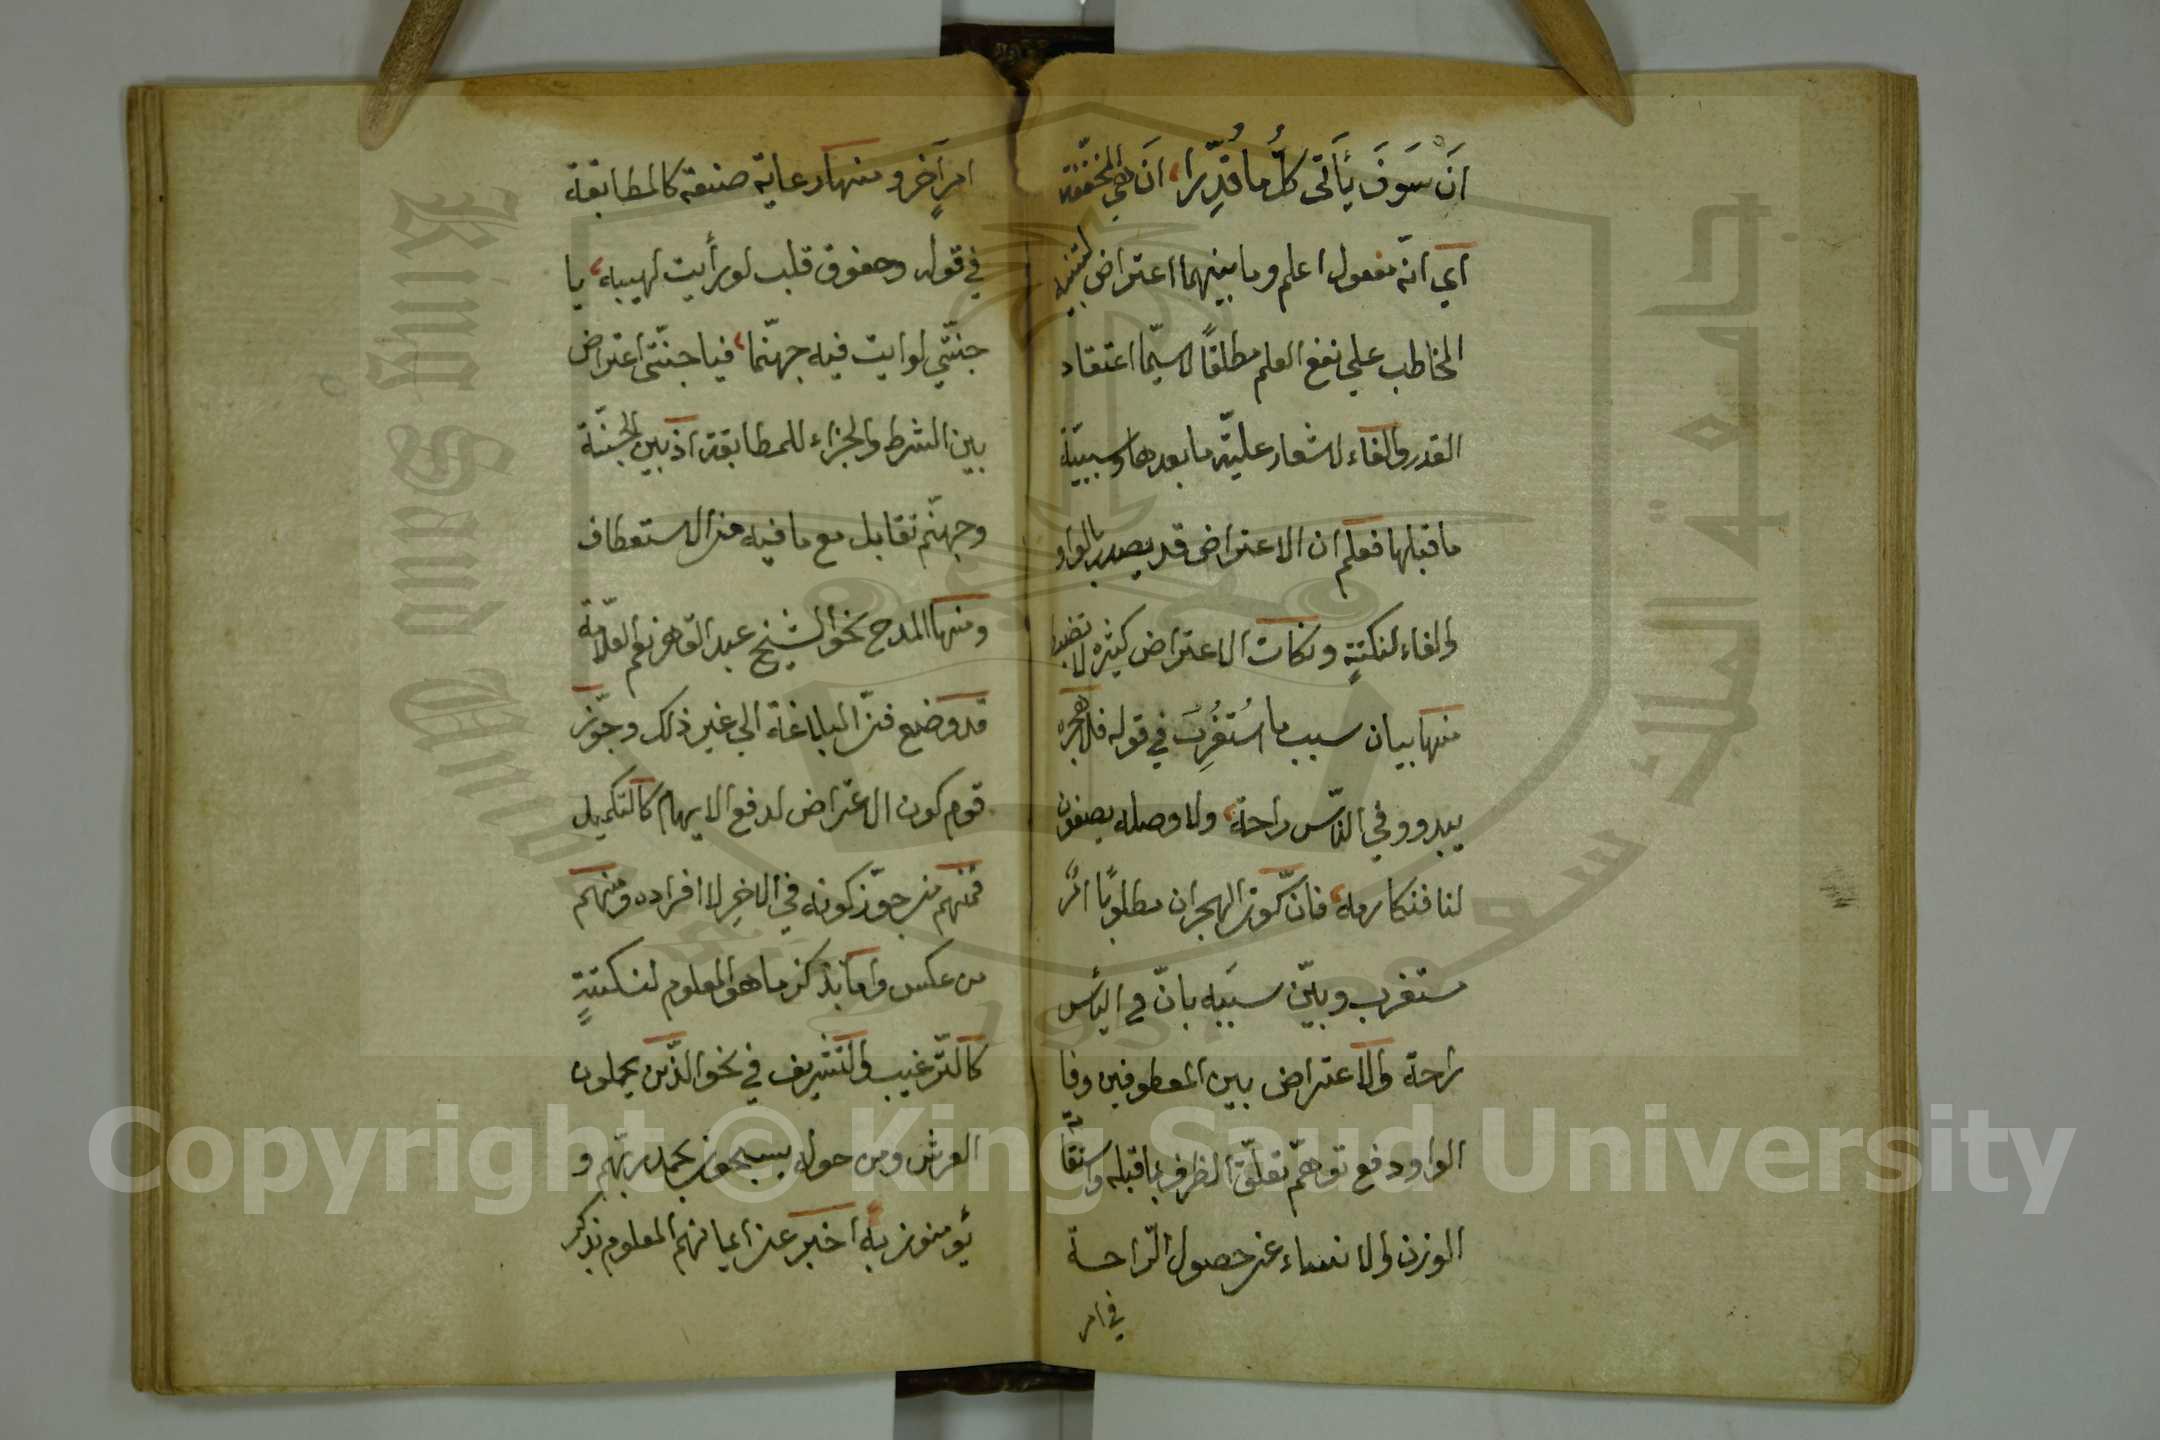 اَنْ سَوَفَ يَأتى كلُّ ما قُدِّرا، اَن هي المخففة
اي انه مفعول اعلم وما بينهما اعتراض لتنبيه
المخاطب على نفع العلم مطلقاً لا سيّما اعتقاد
القدر والفاء لاشعار عليّة ما بعدها وسببيّة
ما قبلها فعلم ان الاعتراض قد يصدر بالواو
والفاء لنكتةٍ ونكات الاعتراض كثيره لا تضبط
منها بيان سبب ما اسْتُغْرِبَ في قوله فلا هجره
يبدو وفي اليأس راحة، ولا وصله يصفون
لنا فنكارمه، فانّ كون الهجران مطلوبًا امر
مستغرب وبيّن سبَبه بانّ في اليأس
راحة والاعتراض بين المعطوفين وفا
الواو دفع توهّم تعلّق الظرف بما قبله واستقامة
الوزن والانساء عن حصول الرّاحة
في امر
امرٍ آخر ومنها رعاية صنيعة كالمطابقة
في قوله وخفوق قلب لو رأيت لهيبه، يا
جنّتي لرايت فيه جهنّما، فيا جنّتى اعتراض
بين الشرط والجزاء للمطابقة اذ بين الجنّة
وجهنّم تقابل مع ما فيه من الاستعطاف
ومنها المدح نحو الشيخ عبد القاهر نعم العلّامة
قد وضع فنّ البلاغة الى غير ذلك وجوّز
قوم كون الاعتراض لدفع الايهام كالتكميل
فمنهم من جوّز كونه في الاخِر لا افراده ومنهم
من عكس واما بذكر ما هو المعلوم لنكتةٍ
كالتّرغيب والتشريف في نحو الذّين يحملون
العرش ومن حوله يسبحون بحمد ربّهم و
يؤمنون به اخبر عن ايمانهم المعلوم بذكر
Copyright © King Saud University